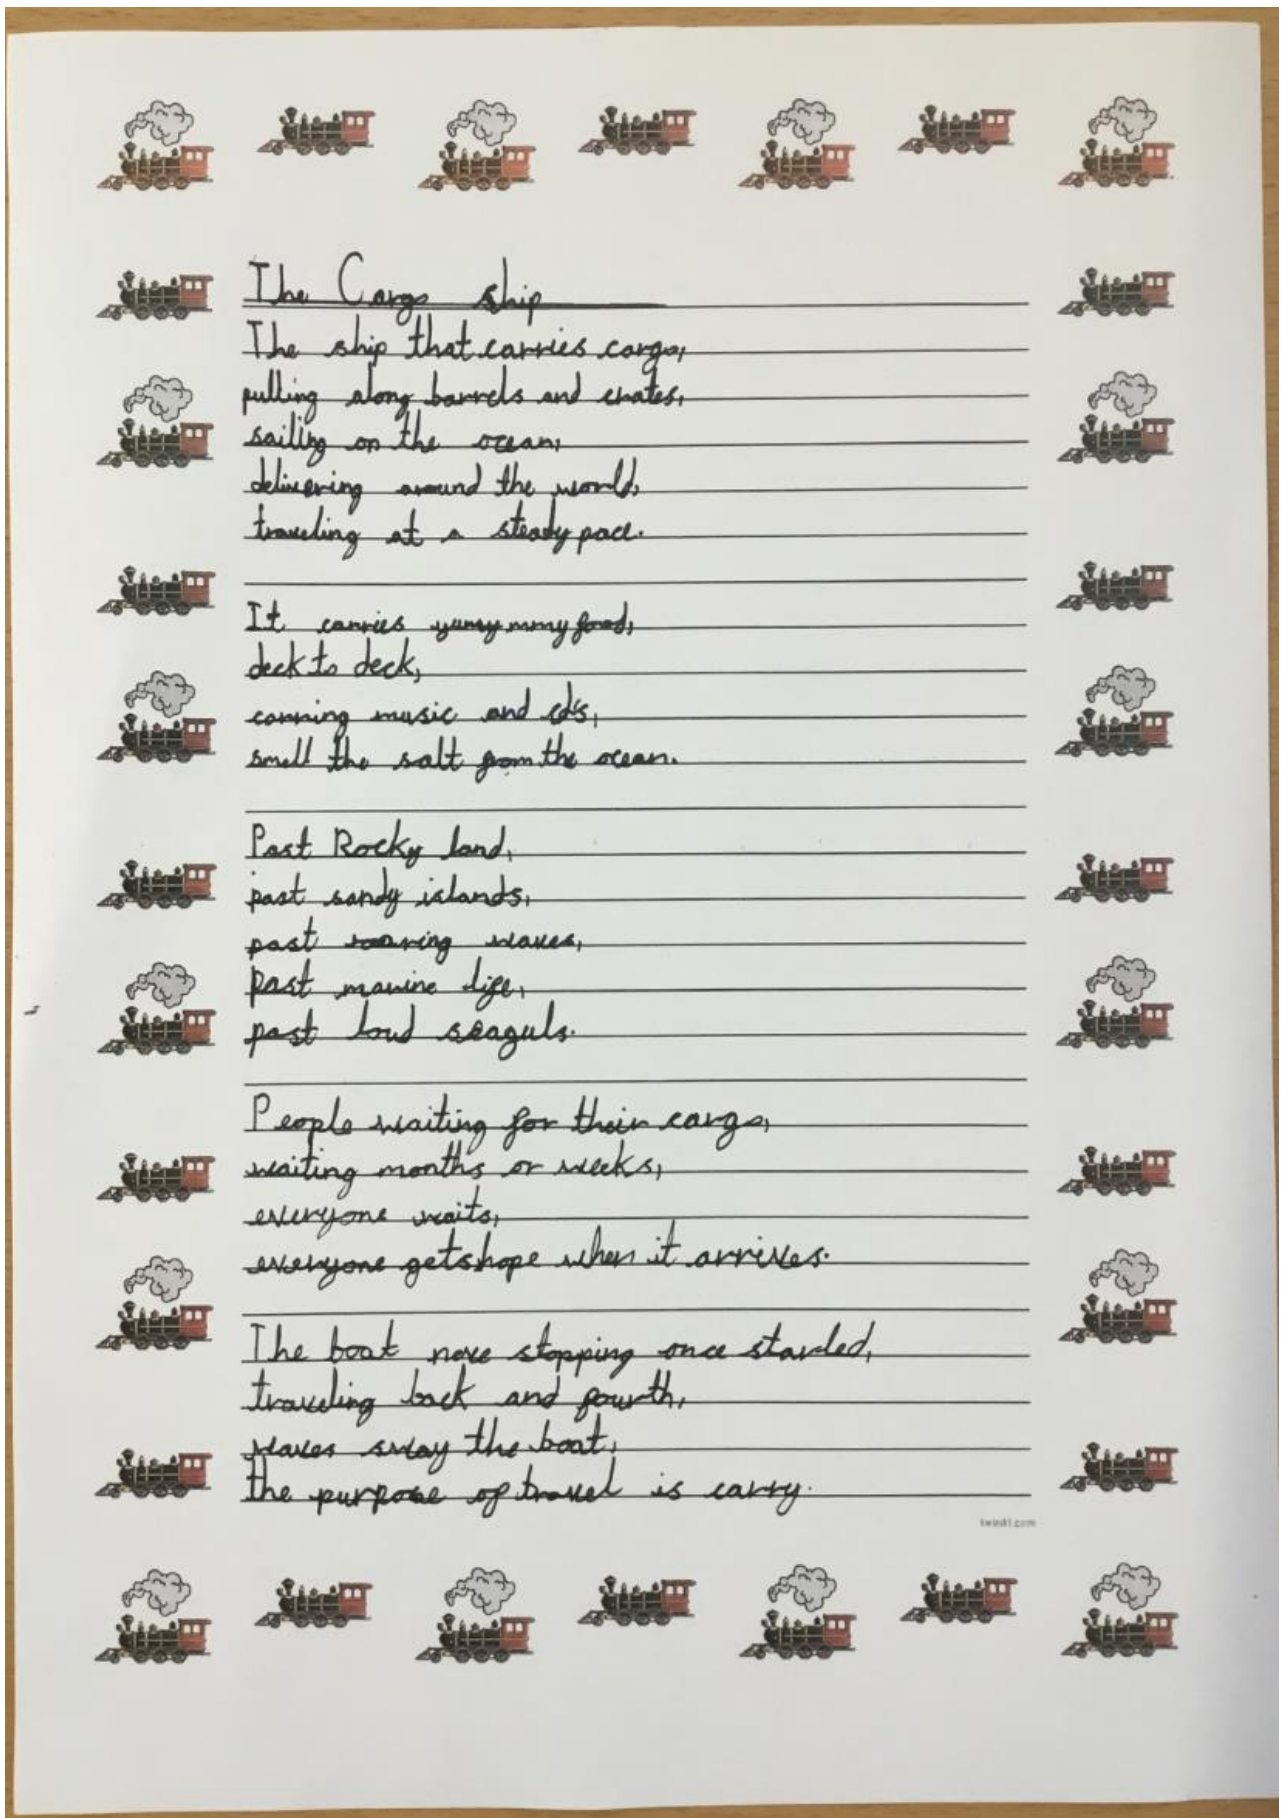 The Cargo ship
The ship that carries cargo,
pulling along barrels and crates,
sailing on the ocean,
delivering around the world,
traveling at a steady pace.
It carries yumy mmy food,
deck to deck,
carring music and cd's,
smell the salt from the ocean.
Past Rocky land,
past sandy islands,
past roaring waves,
past marine life,
past loud seaguls.
People waiting for their cargo,
waiting months or weeks,
everyone waits,
everyone gets hope when it arrives.
The boat nove stopping once started,
traveling back and fourth,
waves sway the boat,
the purpose of travel is carry.
twinkl.com